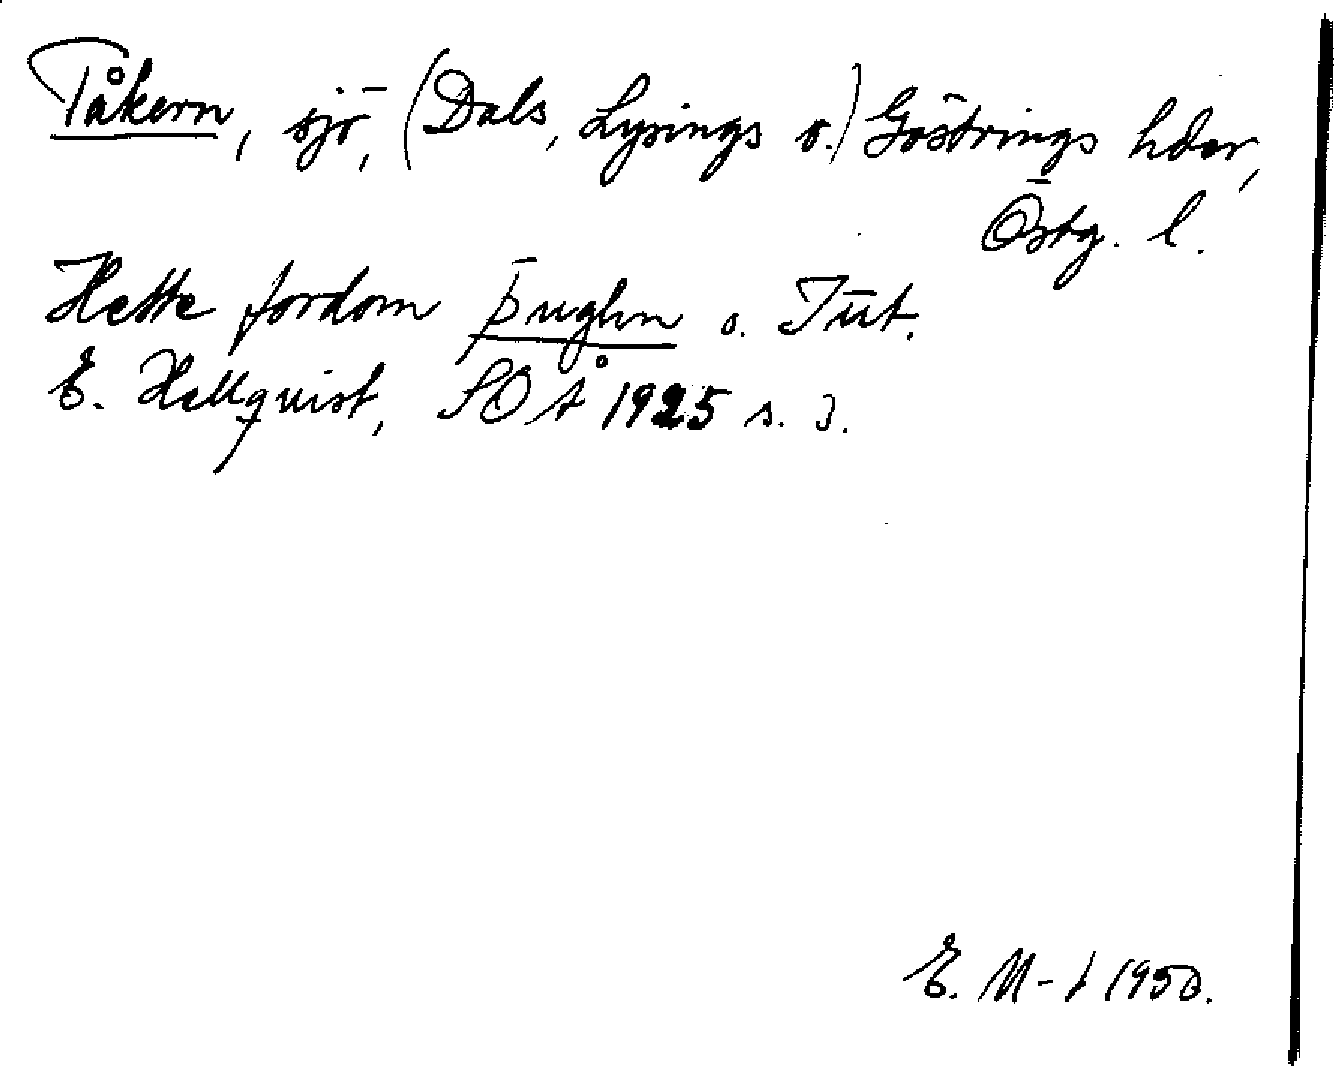 Tåkern, sjö, (Dals, Lysings o.) Göstrings hdar,
Östg. l.
Hette fordom þughn o. Tut.
E. Hellquist, SOÅ 1925 s. 3.
E. M-t 1950.